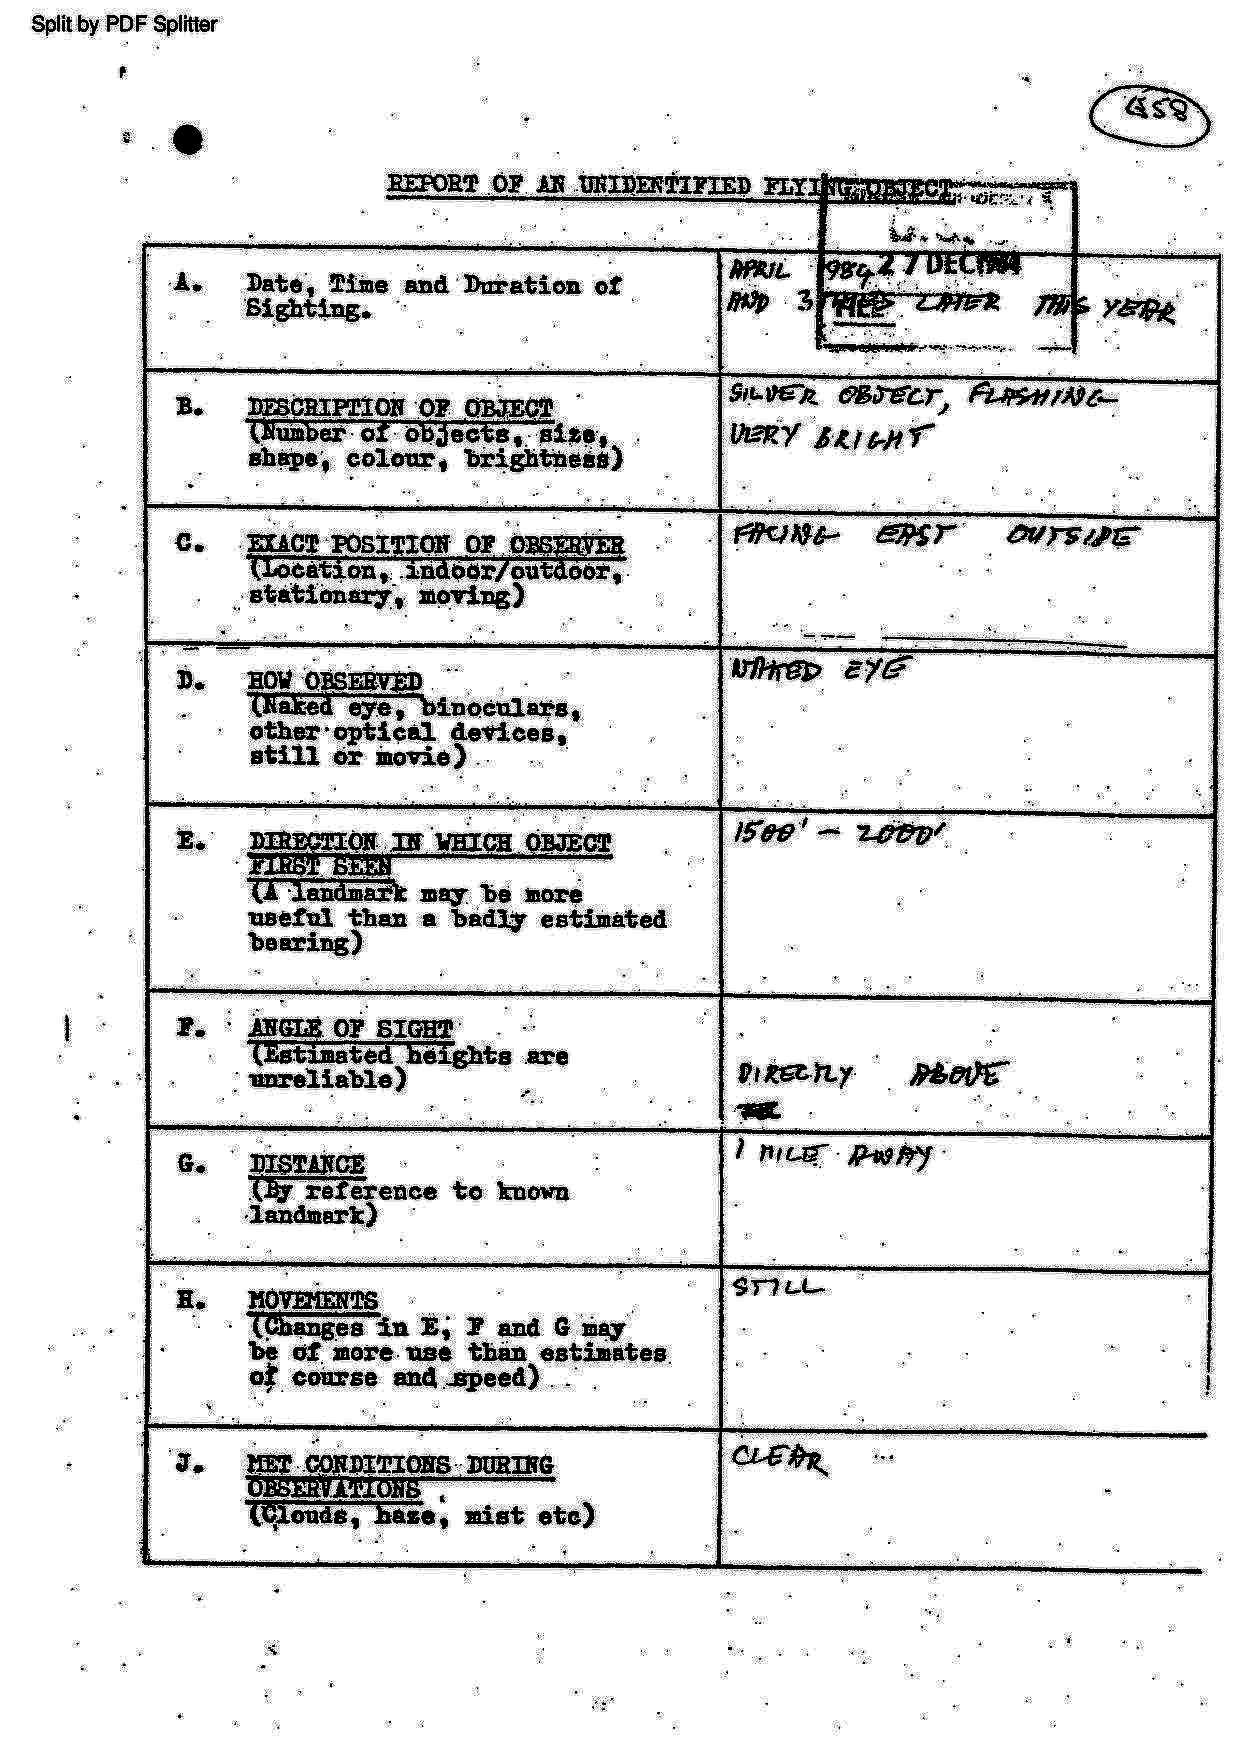 Split by PDF Splitter
458
REPORT OF AN UNIDENTIFIED FLYING OBJECT
27 DEC 1984
A. Date, Time and Duration of
Sighting.
APRIL 1984
AND 3 LATER THIS YEAR
FILE
B. DESCRIPTION OF OBJECT
(Number of objects, size,
shape, colour, brightness)
SILVER OBJECT, FLASHING
VERY BRIGHT
C. EXACT POSITION OF OBSERVER
(Location, indoor/outdoor,
stationary, moving)
FACING EAST OUTSIDE
D. HOW OBSERVED
(Naked eye, binoculars,
other optical devices,
still or movie)
NAKED EYE
E. DIRECTION IN WHICH OBJECT
FIRST SEEN
(A landmark may be more
useful than a badly estimated
bearing)
1500' - 2000'
F. ANGLE OF SIGHT
(Estimated heights are
unreliable)
DIRECTLY ABOVE
G. DISTANCE
(By reference to known
landmark)
1 MILE AWAY
H. MOVEMENTS
(Changes in E, F and G may
be of more use than estimates
of course and speed)
STILL
J. MET CONDITIONS DURING
OBSERVATIONS
(Clouds, haze, mist etc)
CLEAR